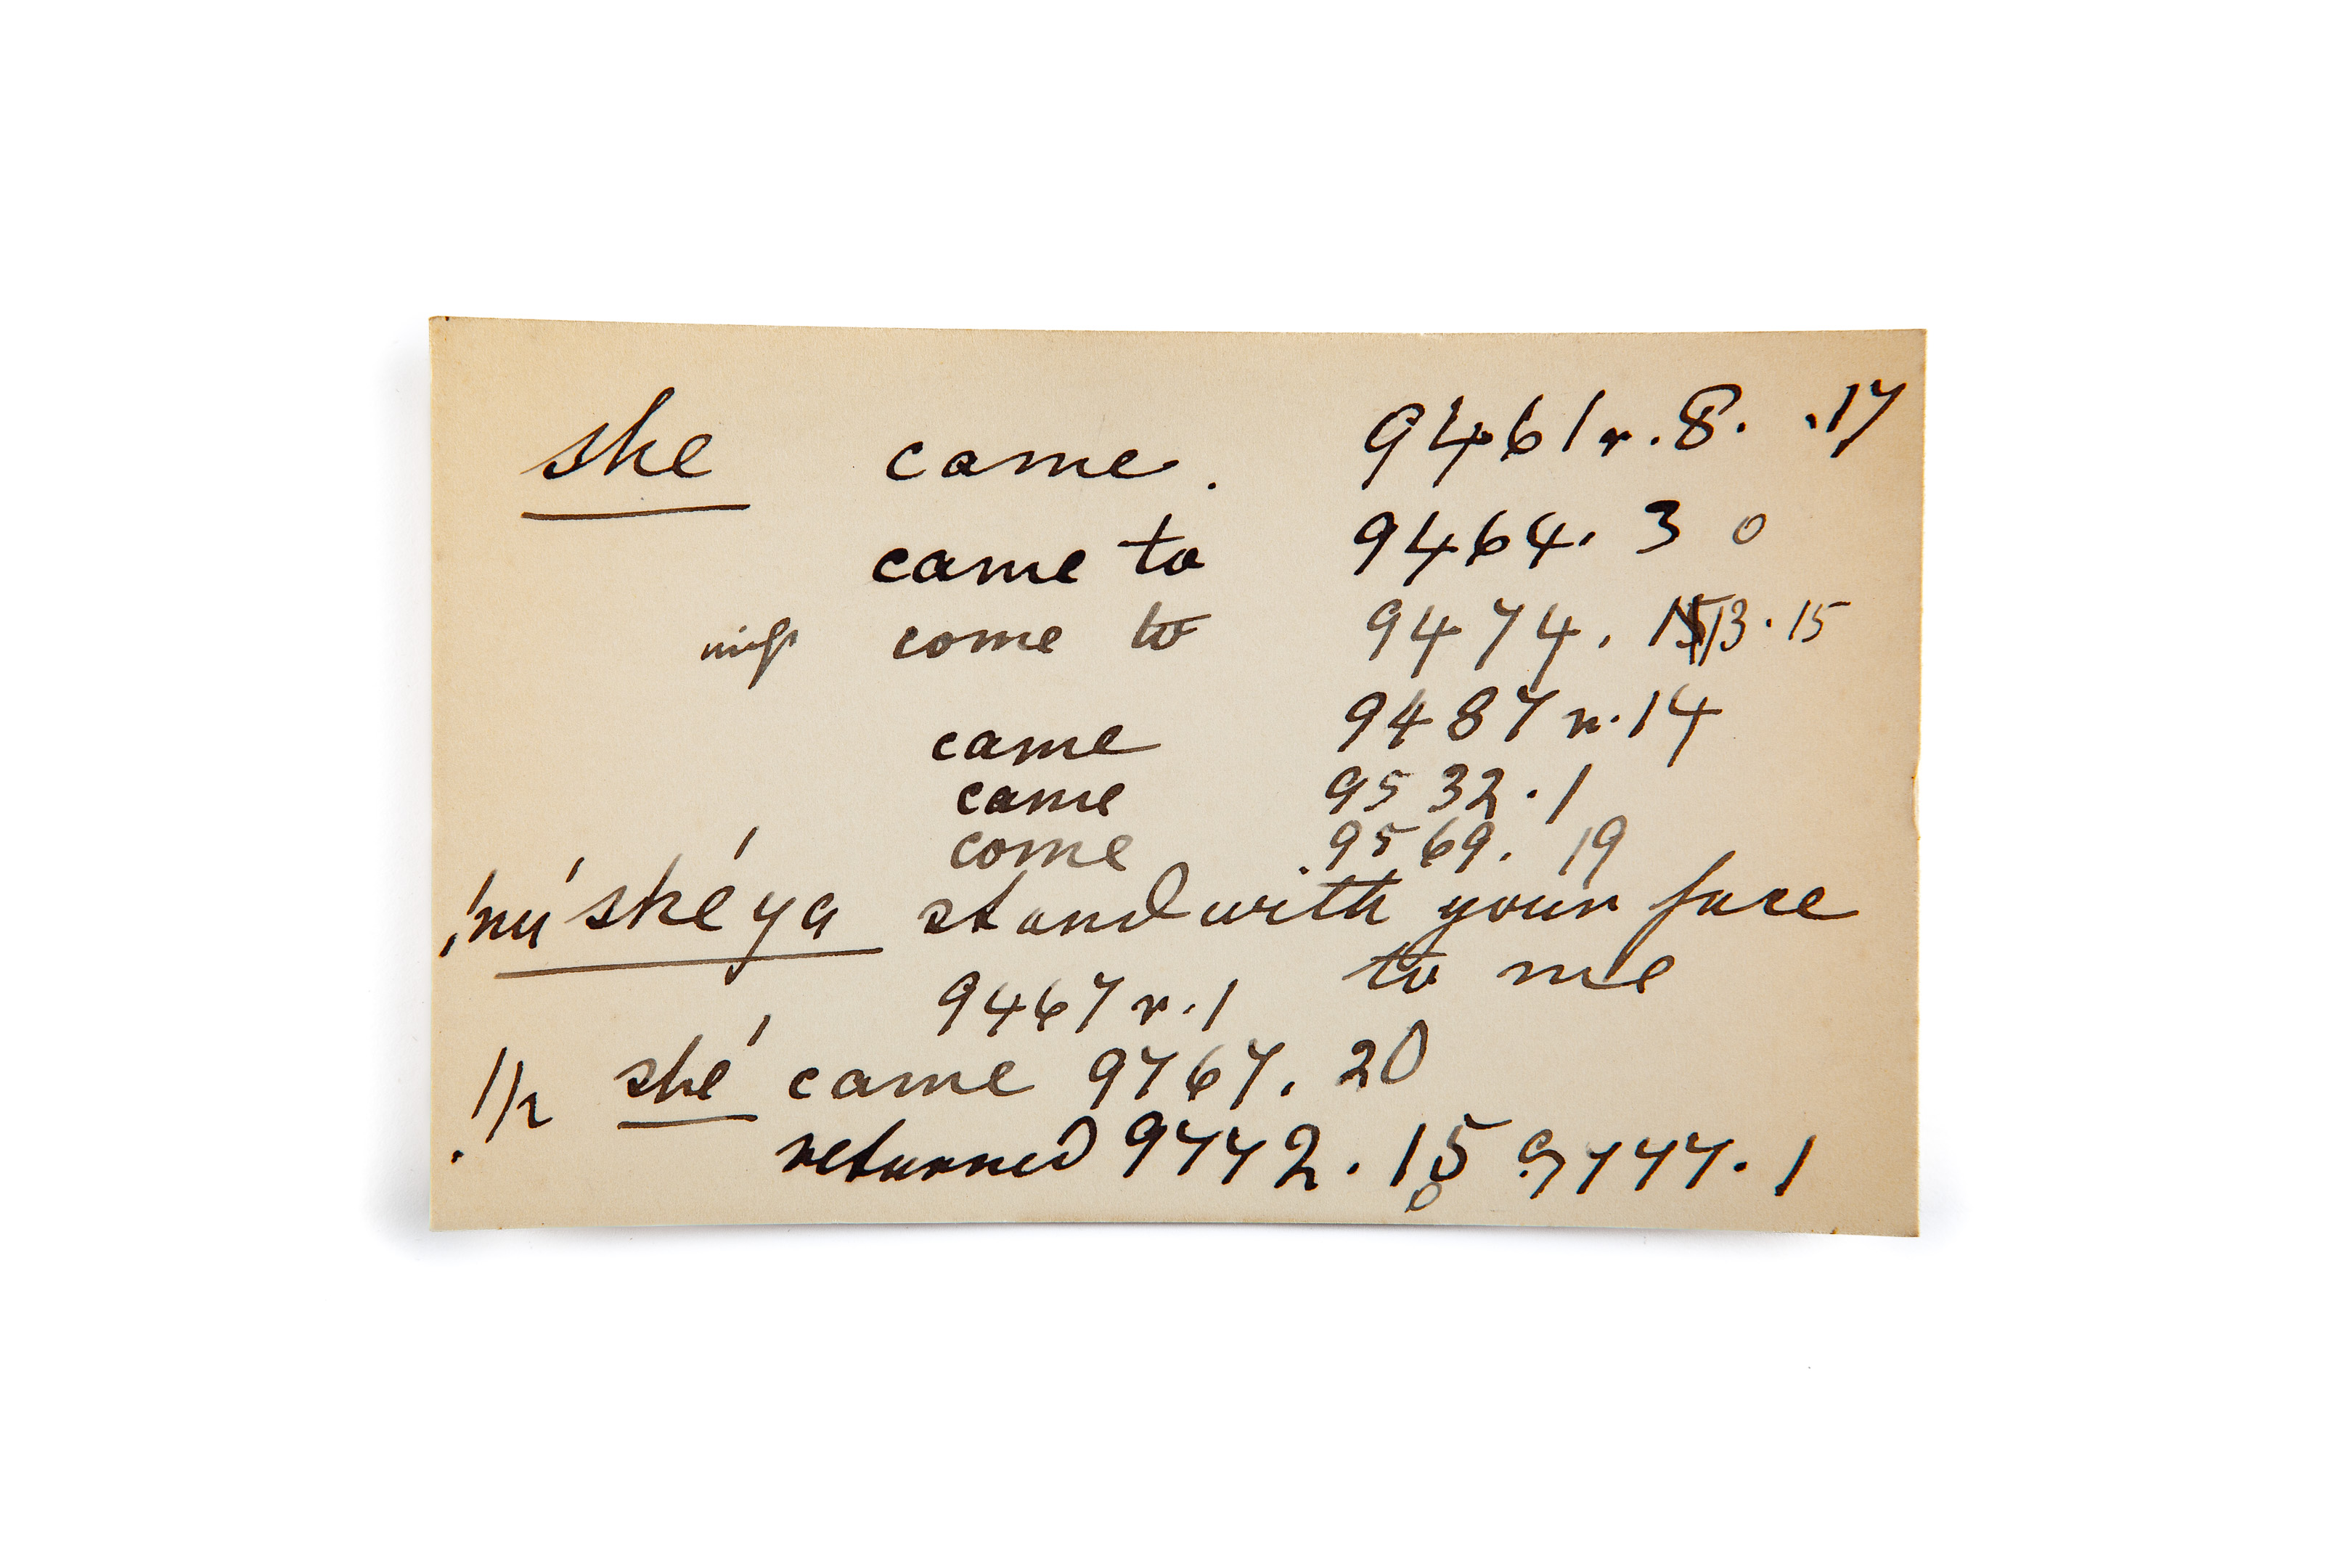 she came. 9461r.8. .17
came to 9464. 3 0
come to 9474. 13.15
came 9487r.14
came 9532.1
come 9569. 19
!nu' shé ya stand with your face
to me
9467r.1
shé came 9767. 20
returned 9772. 15 9777. 1